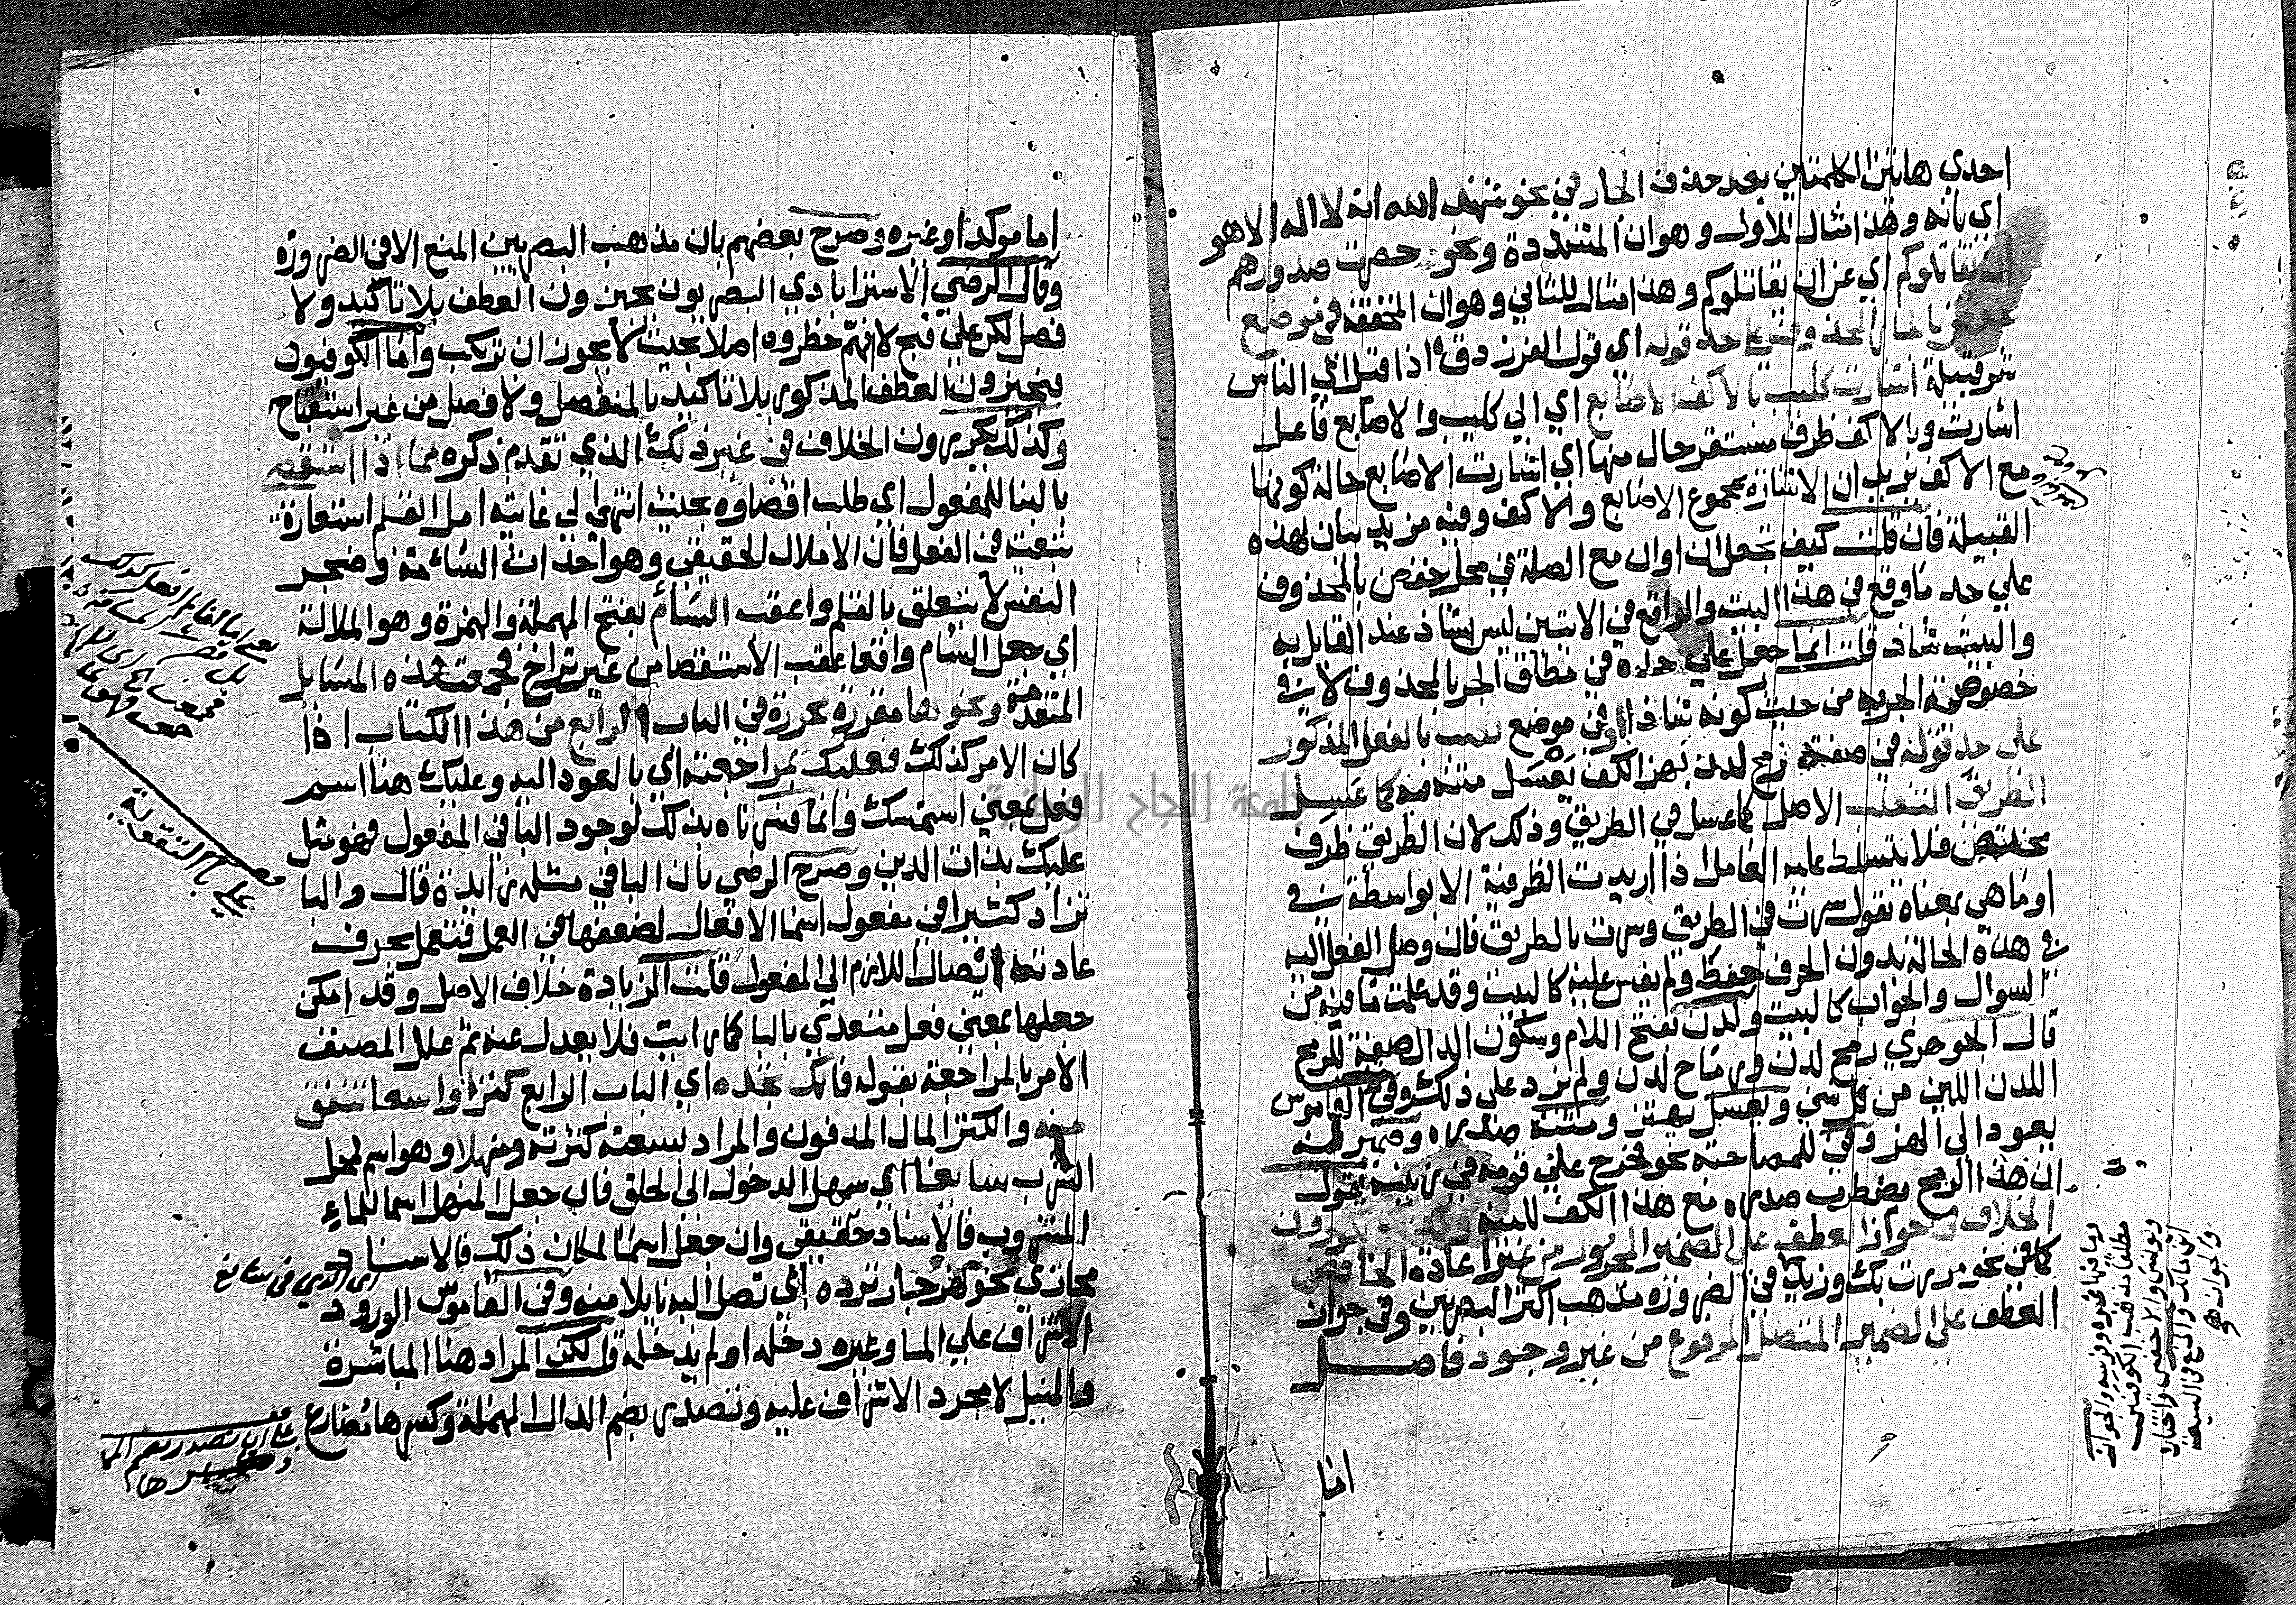 احدي هاتين الكلمتين بعد حذف الجار في نحو شهد الله انه لا اله الا هو
اي بانه وهذا مثال للاول وهو ان المشددة ونحو حصرت صدورهم
ان يقاتلوكم اي عن ان يقاتلوكم وهذا مثال للثاني وهو ان المخففة في موضع
بالجار المحذوف علي حد قوله اي قول الفرزدق اذا قيل اي الناس
شر قبيلة اشارت كليب بالاكف الاصابع اي الي كليب والاصابع فاعل
اشارت وبالاكف ظرف مستقر حال منها اي اشارت الاصابع حالة كونها
مع الاكف يريد ان الاشارة بمجموع الاصابع والاكف وفيه مزيد بيان لهذه
القبيلة فان قلت كيف تجعل ان وان مع الصلة في محل خفض بالمحذوف
علي حد ما وقع في هذا البيت والواقع في الايتين ليس بشاذ عند القايل به
والبيت شاذ قلت انما جعل علي حده في مطلق الجر بالمحذوف لا في
خصوصية الجر به من حيث كونه شاذا او في موضع نصب بالفعل المذكور
علي حد قوله في صفة رمح لدن بهز الكف يعسل متنه فيه كما عسل
الطريق الثعلب الاصل كما عسل في الطريق وذلك لان الطريق ظرف
مختص فلا يتسلط عليه العامل اذا اريدت الظرفية الا بواسطة في
او ما هي بمعناه تقول سرت في الطريق وسرت بالطريق فان وصل الفعل اليه
في هذه الحالة بدون الحرف حفظ ولم يقس عليه كالبيت وقد علمت ما فيه من
السوال والجواب كالبيت ولدن بفتح اللام وسكون الدال صفة للرمح
قال الجوهري رمح لدن ورماح لدن ولم يزد علي ذلك وفي القاموس
اللدن اللين من كل شي ويعسل يهتز ومتنه صدره وضمير فيه
يعود الي الهز وفي للمصاحبة نحو فخرج علي قومه في زينته يقول
ان هذا الرمح مضطرب صدره مع هذا الكف للينه
الخلاف في جواز العطف علي الضمير المجرور من غير اعادة الخافض
كما في نحو مررت بك وزيد في الضرورة مذهب اكثر البصريين وفي جواز
العطف علي الضمير المتصل المرفوع من غير وجود فاصل
اما
وما فيها غيره والجواز
مطلقا مذهب الكوفيين
ويونس والاخفش واختاره
ابن مالك والمنع في السعة
والجواز هو
اما موكدا وغيره وصرح بعضهم بان مذهب البصريين المنع الا في الضرورة
وقال الرضي الاسترابادي البصريون يجيزون العطف بلا تاكيد ولا
فصل لكن علي قبح لا انهم حظروه اصلا بحيث لا يجوز ان يرتكب واما الكوفيون
فيجيزون العطف المذكور بلا تاكيد بالمنفصل ولا فصل من غير استقباح
وكذلك يجرون الخلاف في غير ذلك الذي تقدم ذكره مما اذا استقصي
بالبنا للمفعول اي طلب اقصاوه بحيث انتهي الي غايته امل القلم استعارة
تبعية في الفعل فان الاملال الحقيقي وهو احداث السامة وضجر
النفس لا يتعلق بالقلم واعقب السأم بفتح المهملة والهمزة وهو الملالة
اي جعل السام واقعا عقب الاستقصا من غير تراخ فجمعت هذه المسايل
المتقدمة ونحوها مقررة محررة في الباب الرابع من هذا الكتاب اذا
كان الامر كذلك فعليك بمراجعته اي بالعود اليه وعليك هنا اسم
فعل بمعني استمسك وانما فسرناه بذلك لوجود البا في المفعول فهو مثل
عليك بذات الدين وصرح الرضي بان البا في مثله زايدة قال والبا
تزاد كثيرا في مفعول اسما الافعال لضعفها في العمل فتعمل بحرف
عادته ايصال اللازم الي المفعول قلت الزيادة خلاف الاصل وقد امكن
جعلها بمعني فعل متعدي بالبا كما رايت فلا يعدل عنه ثم علل المصنف
الامر بالمراجعة بقوله فانك تجده اي الباب الرابع كنزا واسعا تنفق
منه والكنز المال المدفون والمراد بسعته كثرته ومنهلا وهو اسم لمحل
الشرب سايغا اي سهل الدخول الي الحلق فان جعل المنهل اسما للماء
المشروب فالاسناد حقيقي وان جعل اسما لمكان ذلك فالاسناد
مجازي نحو نهر جار ترده اي تصل اليه نايلا منه وفي القاموس الورود
الاشراف علي الما وغيره دخله او لم يدخله قلت لكن المراد هنا المباشرة
والنيل لا مجرد الاشراف عليه وتصدر بضم الدال المهملة وكسرها مضارع
اي الذي في سايغ
علي بالتقوية